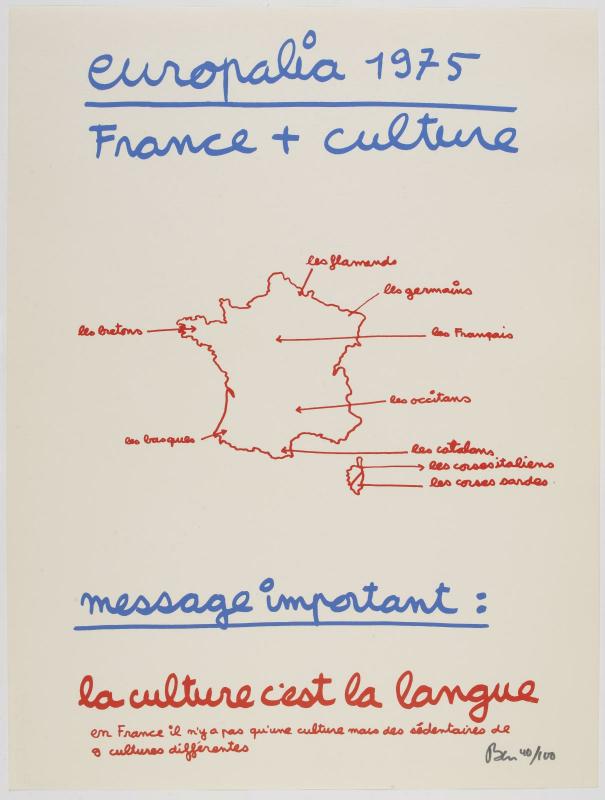 europalia 1975
France + culture
les flamands
les germains
les bretons
les Français
les occitans
les basques
les catalans
les corses italiens
les corses sardes
message important :
la culture c'est la langue
en France il n'y a pas qu'une culture mais des sédentaires de
8 cultures différentes
Ben 40/100